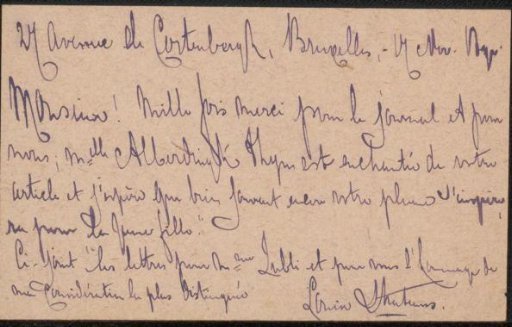 27 Avenue de Cortenbergh, Bruxelles, - 17 Nov.
Monsieur! Mille fois merci pour le journal et pour
vous, Melle Alberdingk Thym est enchantée de votre
article et j'espère que bien souvent encore votre plume s'inspire,
ra pour "la jeune fille".
Ci-joint les lettres pour Mme et pour vous l'hommage de
ma considération la plus distinguée
Louise Stratenus.